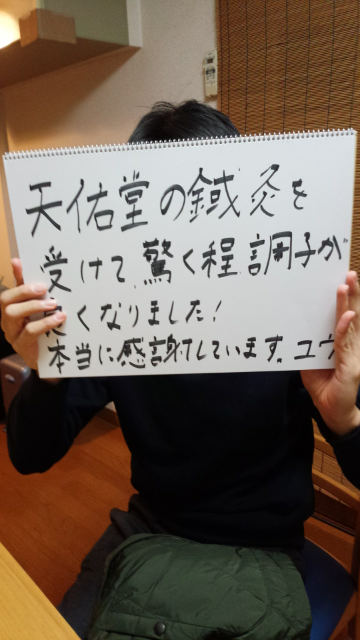 天佑堂の鍼灸を
受けて驚く程調子が
良くなりました!
本当に感謝しています。ユウ